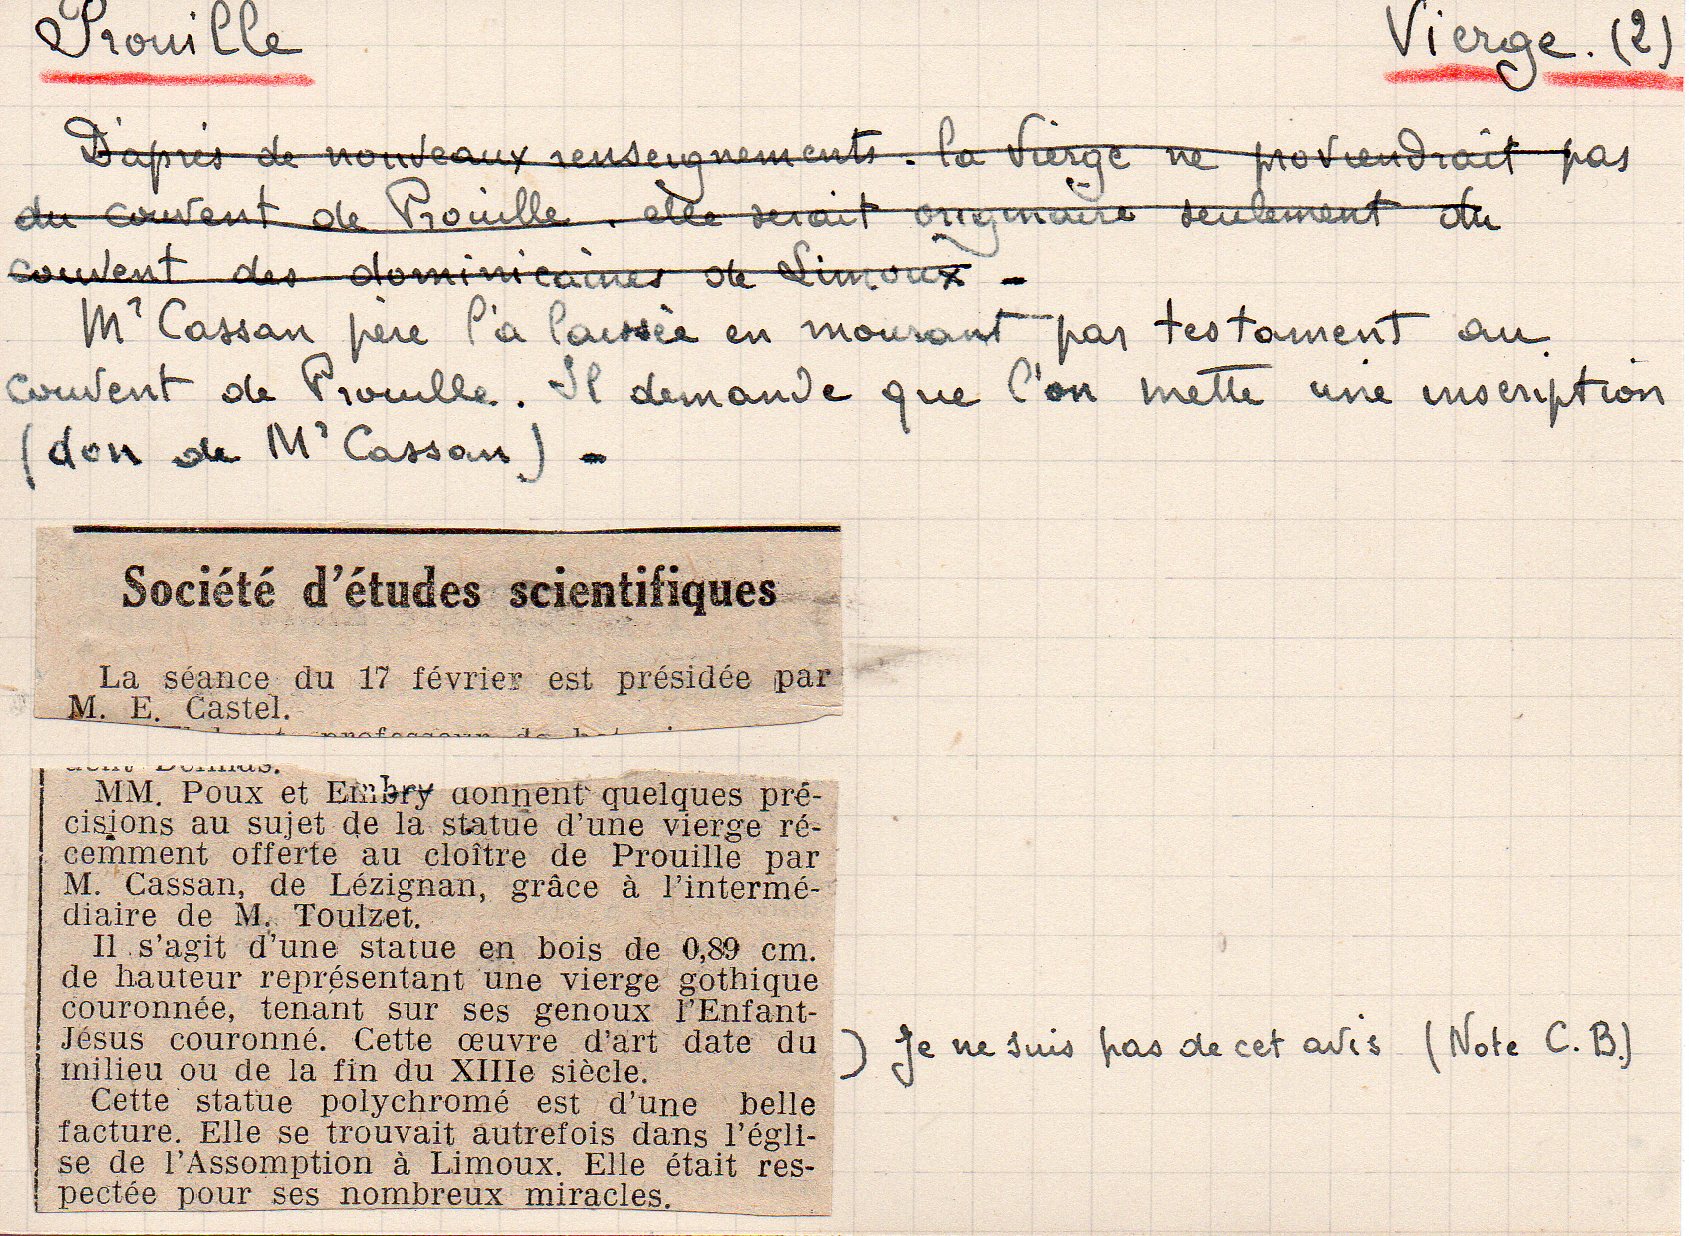 Prouille
Vierge. (2)
D'après de nouveaux renseignements. la Vierge ne proviendrait pas
du couvent de Prouille. elle serait originaire seulement du
couvent des dominicaines de Limoux -
Mr Cassan père l'a laissée en mourant par testament au
couvent de Prouille. Il demande que l'on mette une inscription
(don de Mr Cassan) -
Société d'études scientifiques
La séance du 17 février est présidée par
M. E. Castel.
MM. Poux et Embry donnent quelques pré-
cisions au sujet de la statue d'une vierge ré-
cemment offerte au cloître de Prouille par
M. Cassan, de Lézignan, grâce à l'intermé-
diaire de M. Toulzet.
Il s'agit d'une statue en bois de 0,89 cm.
de hauteur représentant une vierge gothique
couronnée, tenant sur ses genoux l'Enfant-
Jésus couronné. Cette œuvre d'art date du
milieu ou de la fin du XIIIe siècle.
) Je ne suis pas de cet avis (Note C.B.)
Cette statue polychromé est d'une belle
facture. Elle se trouvait autrefois dans l'égli-
se de l'Assomption à Limoux. Elle était res-
pectée pour ses nombreux miracles.